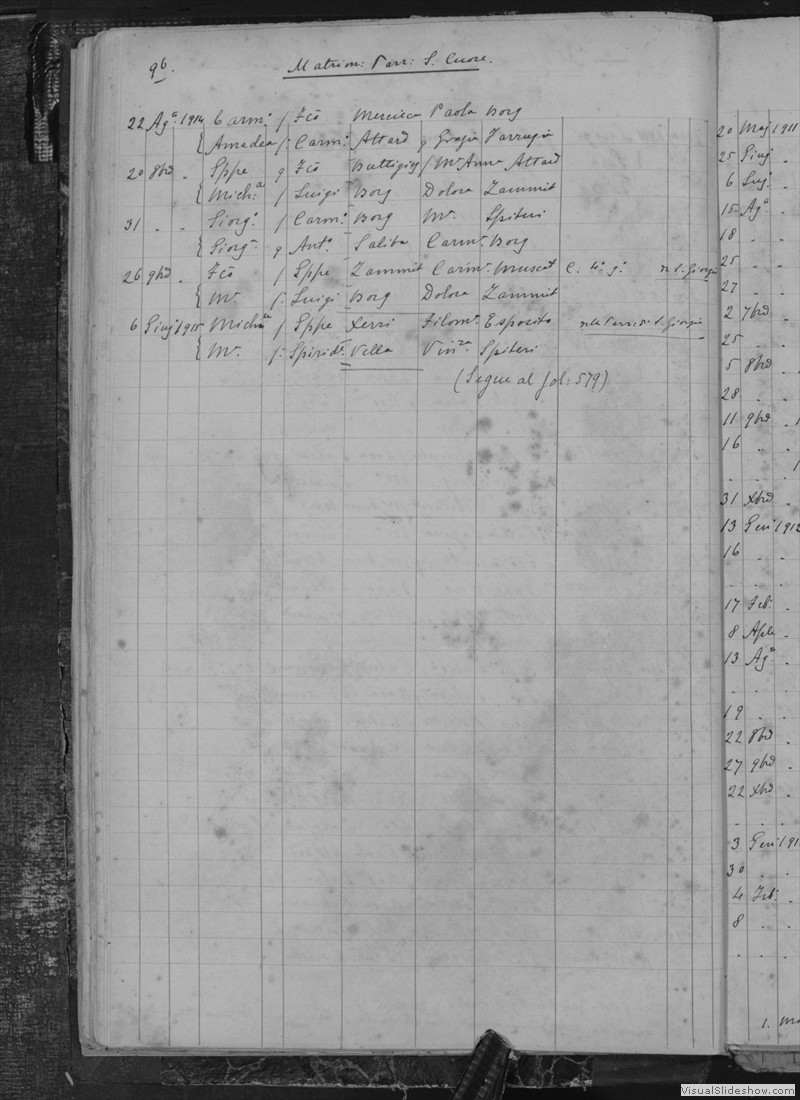 96.
Matrim: Parr: S. Cuore.
22 Ag.o 1914 Carm.o f Fco Mercieca Paola Borg
{ Amadea f. Carm.o Attard q Grazia Farrugia
20 8bre . Sppe q Fco Buttigieg f M.a Anna Attard
{ Mich.a f Luigi Borg Dolora Zammit
31 . . Giorg.o f Carm.o Borg M.a Spiteri
{ Giorg.a q Ant.o Saliba Carm.a Borg
26 9bre . Fco f Sppe Zammit Carm.a Muscat n S. Giorgio
{ M.a f. Luigi Borg Dolora Zammit
6 Giug 1915 Mich.e f Sppe Xerri Filom.a Esposito nella Parr. di S. Giorgio
{ M.a f. Spirid.e Vella Vin.za Spiteri
(Segue al fol: 579)
20 Mag 1911
25 Giug .
6 Lug .
15 Ag.o .
18 . .
25 . .
27 . .
2 7bre
25 . .
5 8bre .
28 . .
11 9bre . 1
16 . .
. . . 1
31 Xbre .
13 Gen 1912
16 . .
. . .
17 Feb. .
8 Aple .
13 Ag.o .
. . .
19 . .
22 8bre .
27 9bre .
22 Xbre .
. . .
3 Gen 191
30 . .
4 Feb. .
8 . .
. . .
1. Ma
VisualSlideshow.com